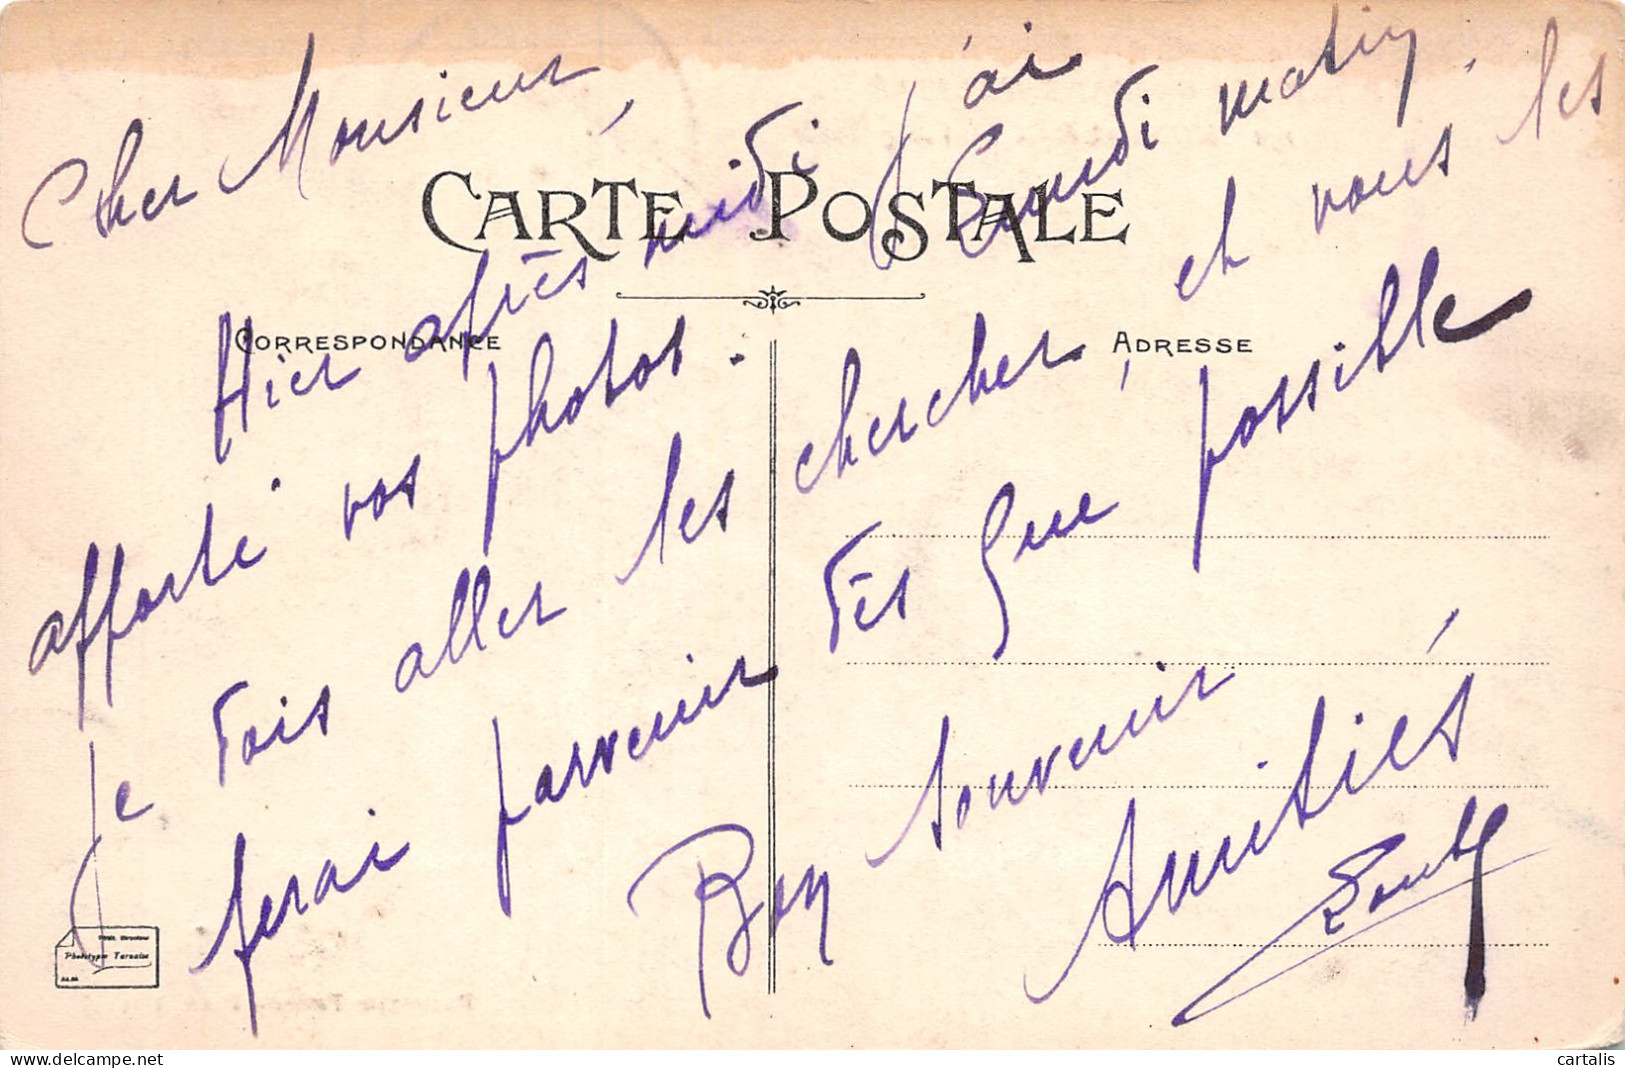 Cher Monsieur,
CARTE POSTALE
Hier après midi j'ai
apporté vos photos. Lundi matin,
CORRESPONDANCE
ADRESSE
je dois aller les chercher, et vous les
ferai parvenir dès que possible
Bon souvenir
Amitiés
Phototypie Tarnaise
cartalis